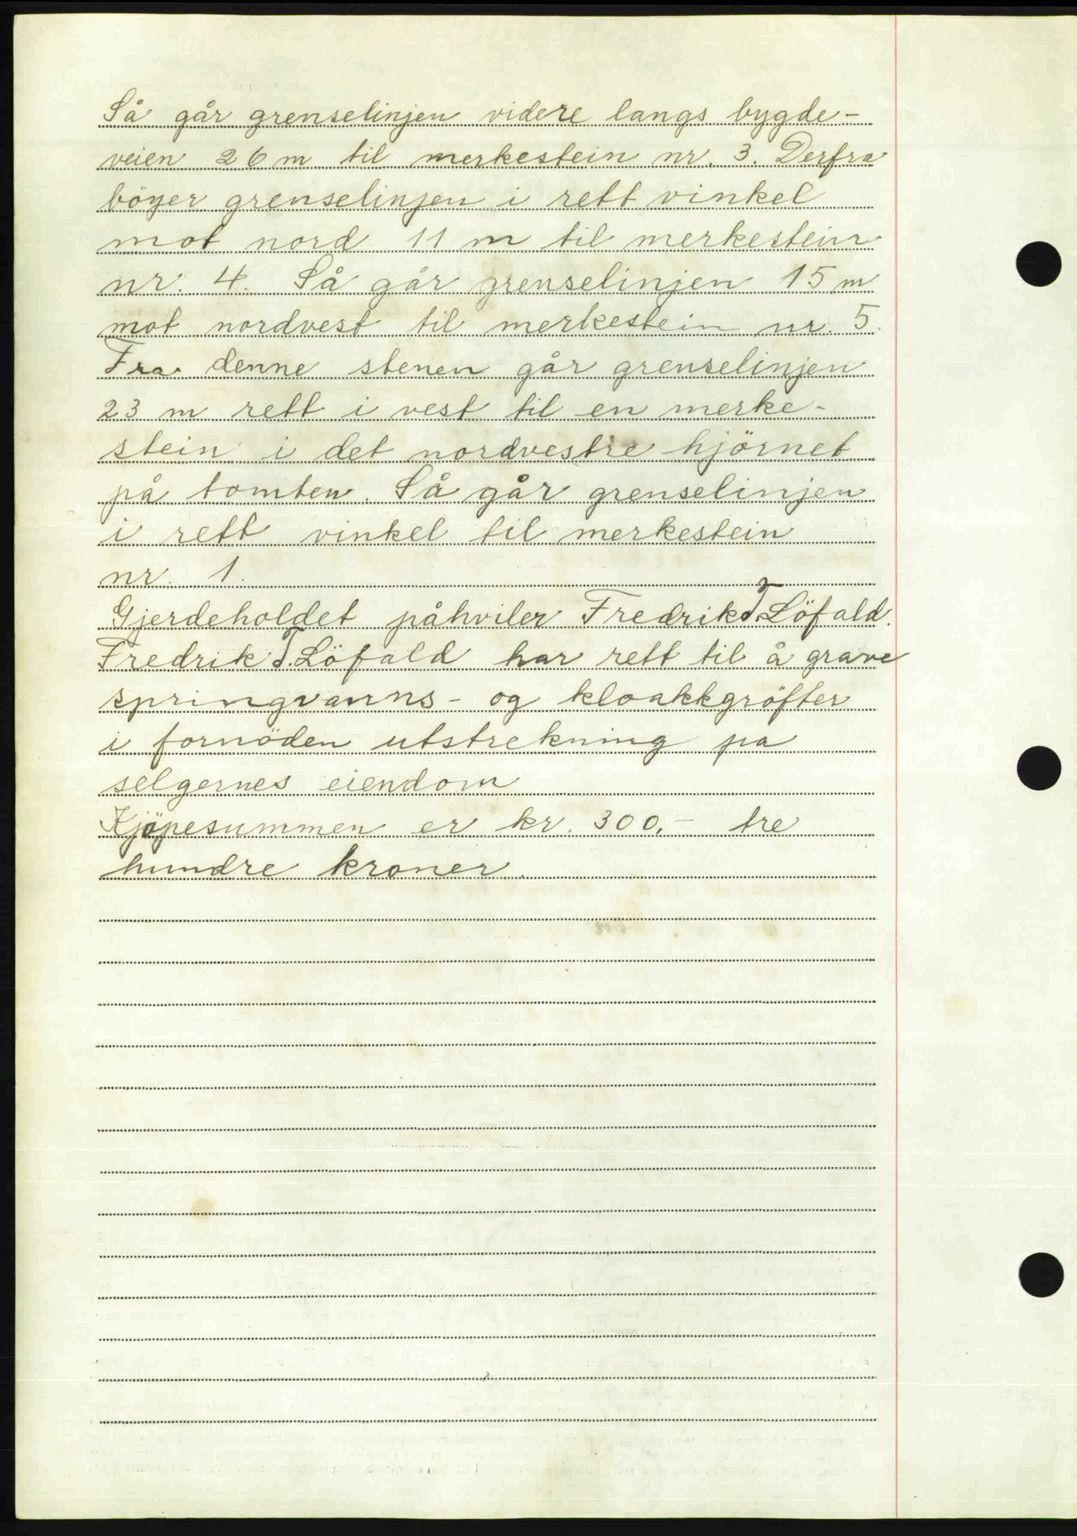 Så går grenselinjen videre langs bygde-
veien 26 m til merkestein nr. 3. Derfra
böyer grenselinjen i rett vinkel
mot nord 11 m til merkestein
nr. 4. Så går grenselinjen 15 m
mot nordvest til merkestein nr. 5.
Fra denne stenen går grenselinjen
23 m rett i vest til en merke-
stein i det nordvestre hjörnet
på tomten. Så går grenselinjen
i rett vinkel til merkestein
nr. 1.
Gjerdeholdet påhviler Fredrik T. Löfald.
Fredrik T. Löfald har rett til å grave
springvanns- og kloakkgröfter
i fornöden utstrekning pa
selgernes eiendom
Kjöpesummen er kr. 300,- tre
hundre kroner.